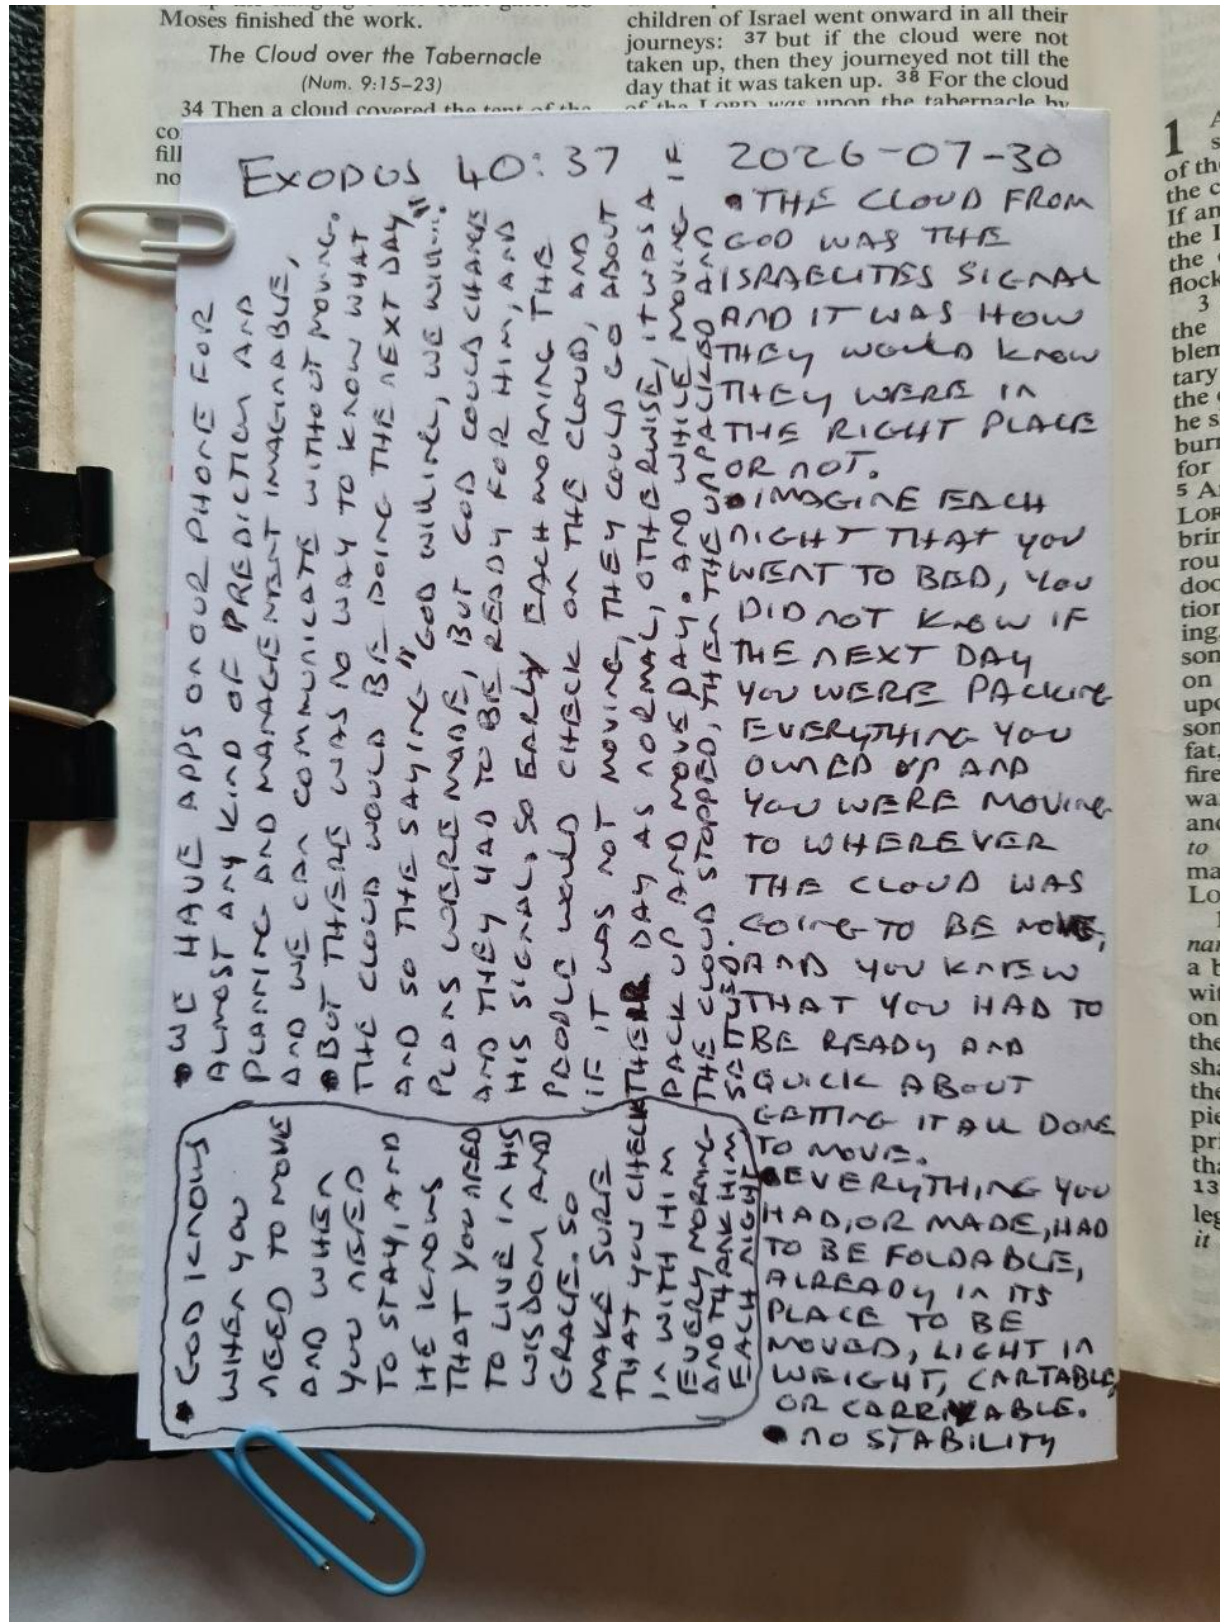 Moses finished the work.
The Cloud over the Tabernacle
(Num. 9:15–23)
34 Then a cloud covered the tent of the
children of Israel went onward in all their
journeys: 37 but if the cloud were not
taken up, then they journeyed not till the
day that it was taken up. 38 For the cloud
of the LORD was upon the tabernacle by
EXODUS 40:37
2026-07-30
• THE CLOUD FROM
GOD WAS THE
ISRAELITES SIGNAL
AND IT WAS HOW
THEY WOULD KNOW
THEY WERE IN
THE RIGHT PLACE
OR NOT.
• IMAGINE EACH
NIGHT THAT YOU
WENT TO BED, YOU
DID NOT KNOW IF
THE NEXT DAY
YOU WERE PACKING
EVERYTHING YOU
OWNED UP AND
YOU WERE MOVING
TO WHEREVER
THE CLOUD WAS
GOING TO BE MOVE,
AND YOU KNEW
THAT YOU HAD TO
BE READY AND
QUICK ABOUT
GETTING IT ALL DONE
TO MOVE.
• EVERYTHING YOU
HAD, OR MADE, HAD
TO BE FOLDABLE,
ALREADY IN ITS
PLACE TO BE
MOVED, LIGHT IN
WEIGHT, CARTABLE,
OR CARRYABLE.
• NO STABILITY
• WE HAVE APPS ON OUR PHONE FOR
ALMOST ANY KIND OF PREDICTION AND
PLANNING AND MANAGEMENT IMAGINABLE,
AND WE CAN COMMUNICATE WITHOUT MOVING.
• BUT THERE WAS NO WAY TO KNOW WHAT
THE CLOUD WOULD BE DOING THE NEXT DAY
AND SO THE SAYING "GOD WILLING, WE WILL..."
PLANS WERE MADE, BUT GOD COULD CHANGE
AND THEY HAD TO BE READY FOR HIM, AND
HIS SIGNAL. SO EARLY EACH MORNING THE
PEOPLE WOULD CHECK ON THE CLOUD, AND
IF IT WAS NOT MOVING, THEY COULD GO ABOUT
THEIR DAY AS NORMAL, OTHERWISE, IT WAS A
PACK UP AND MOVE DAY. AND WHILE MOVING IF
THE CLOUD STOPPED, THEN THE UNPACKED AND
SETTLED.
• GOD KNOWS
WHEN YOU
NEED TO MOVE
AND WHEN
YOU NEED
TO STAY, AND
HE KNOWS
THAT YOU NEED
TO LIVE IN HIS
WISDOM AND
GRACE. SO
MAKE SURE
THAT YOU CHECK
IN WITH HIM
EVERY MORNING
AND THANK HIM
EACH NIGHT